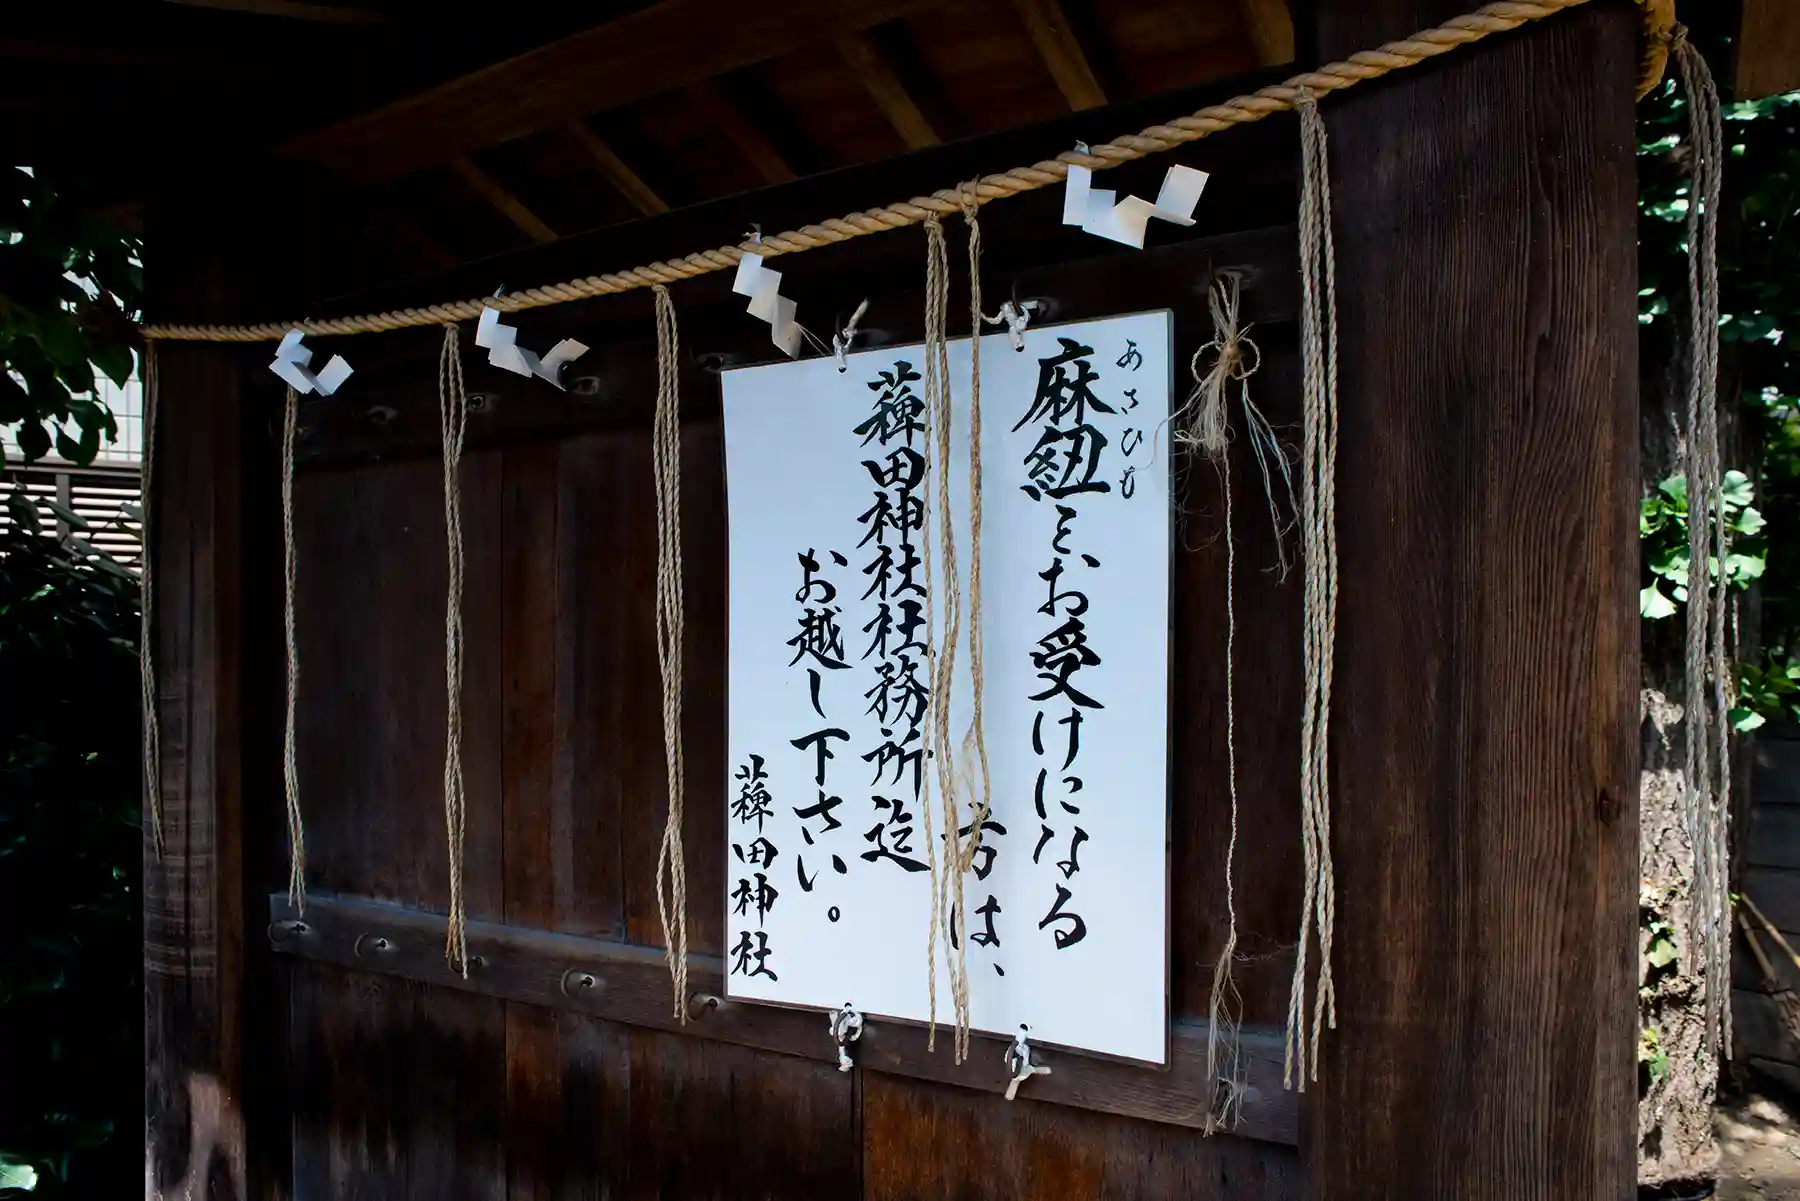 あさひも
麻紐を、お受けになる
方は、
薭田神社社務所迄
お越し下さい。
薭田神社